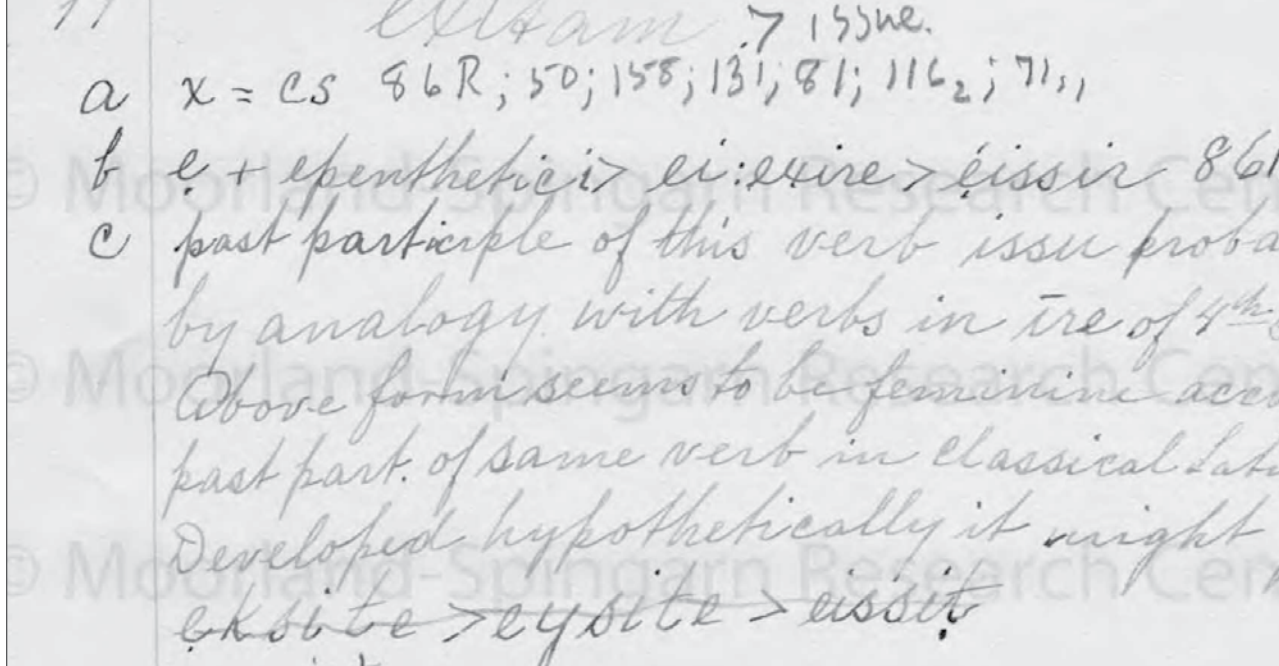 17 exitam > issue.
a x = cs 86R; 50; 158; 131; 81; 116₂; 71,,
b ẹ + epenthetic i > ei: exire > ẹissir 86R
c past participle of this verb issu proba
by analogy with verbs in īre of 4th
Above form seems to be feminine accu
past part. of same verb in Classical Lati
Developed hypothetically it might
ẹksite > eysite > eissit
© Moorland-Spingarn Research Cen
© Moorland-Spingarn Research Cen
© Moorland-Spingarn Research Cen